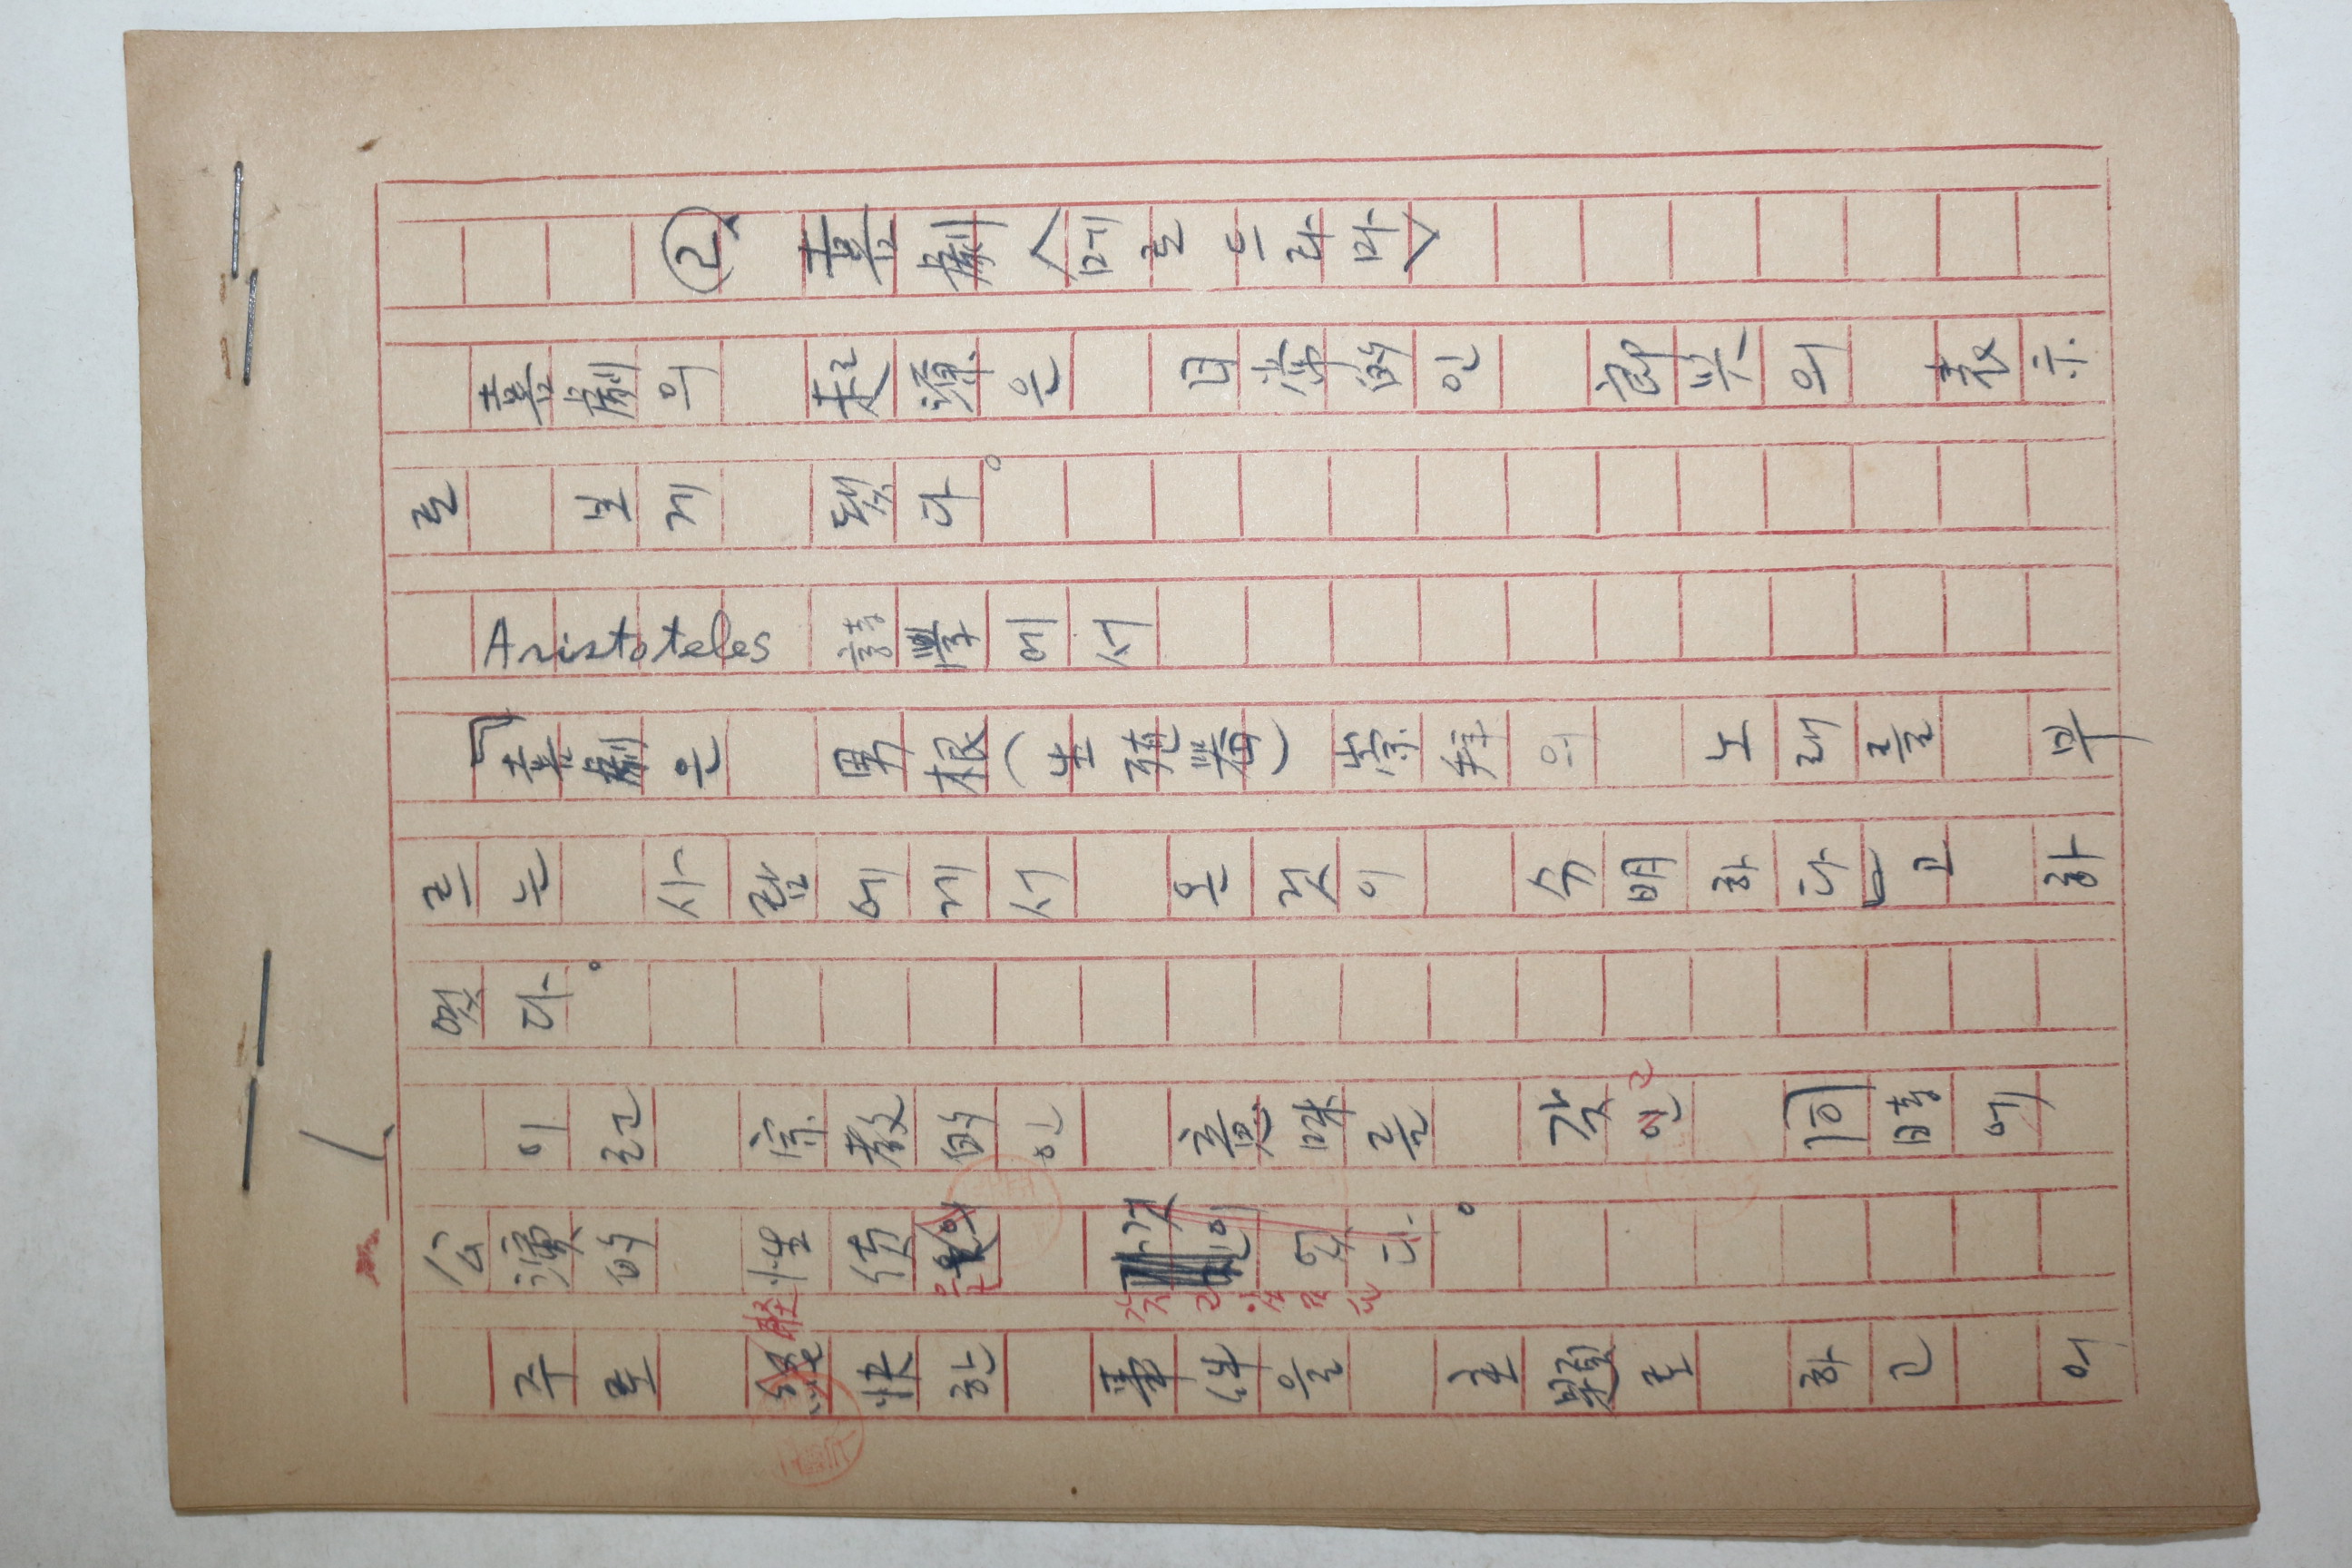 ② 喜劇〈메로드라마〉
喜劇의 起源은 日常的인 卽興의 表示
로 보게 됐다。
Aristoteles 詩學에서
「喜劇은 男根(生殖器) 崇拜의 노래를 부
르는 사람에게서 온 것이 分明하다」고 하
엿다。
이런 宗教的인 意味를 갖인 고 同時에
公演的 性質 은 였다。
갖고
주로 輕快한 事件을 主題로 하고 여